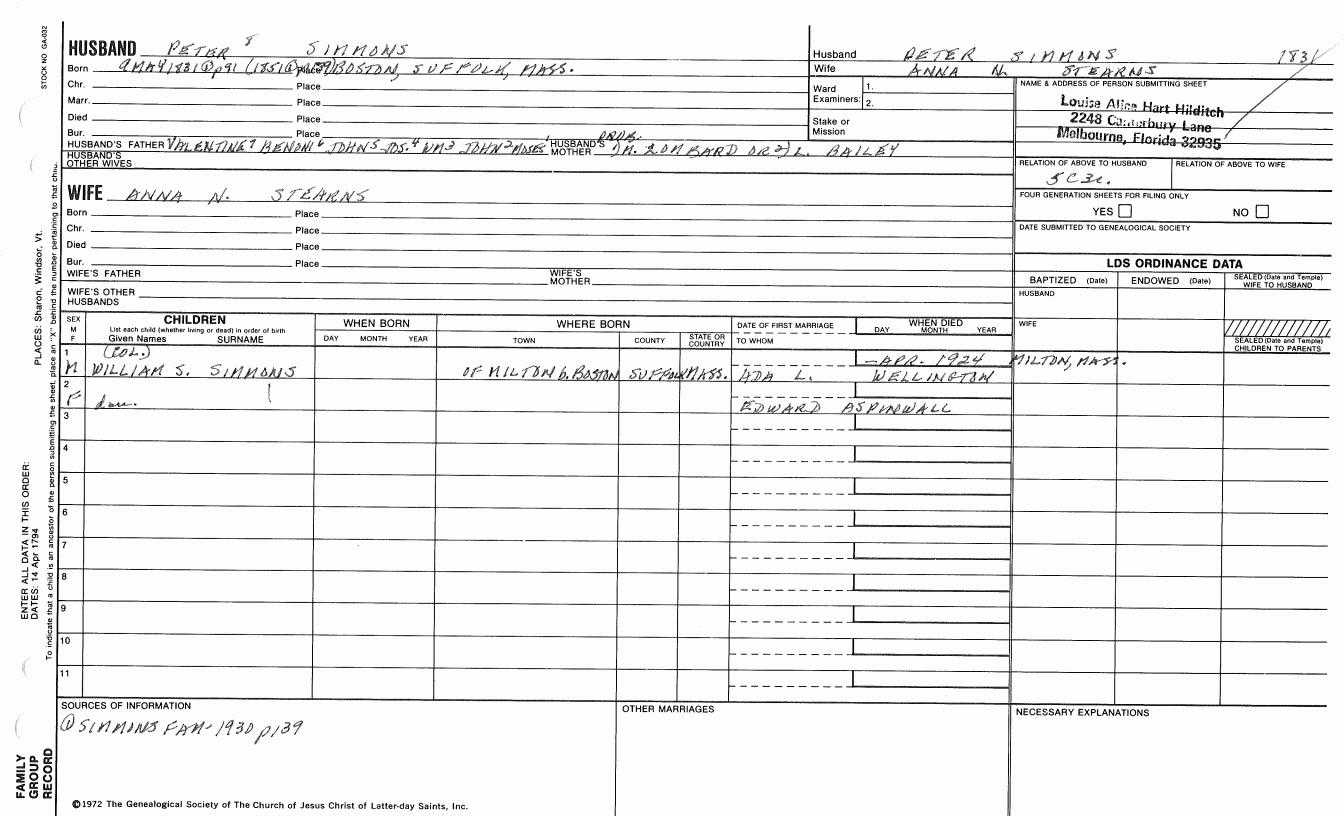 STOCK NO GA-032
HUSBAND PETER 8 SIMMONS
Born 9 MAY 1831 ① p91 (1851 ① p139) Place BOSTON, SUFFOLK, MASS.
Chr. Place
Marr. Place
Died Place
Bur. Place
PROB.
HUSBAND'S FATHER VALENTINE 7 BENONI 6 JOHN 5 JOS. 4 WM 3 JOHN 2 MOSES 1 HUSBAND'S MOTHER 1) M. LOMBARD OR 2) L. BAILEY
HUSBAND'S OTHER WIVES
Husband PETER SIMMONS 1831
Wife ANNA N. STEARNS
Ward Examiners: 1.
2.
Stake or Mission
NAME & ADDRESS OF PERSON SUBMITTING SHEET
Louise Alice Hart Hilditch
2248 Canterbury Lane
Melbourne, Florida 32935
RELATION OF ABOVE TO HUSBAND RELATION OF ABOVE TO WIFE
5C3r.
FOUR GENERATION SHEETS FOR FILING ONLY
YES NO
DATE SUBMITTED TO GENEALOGICAL SOCIETY
WIFE ANNA N. STEARNS
Born Place
Chr. Place
Died Place
Bur. Place
WIFE'S FATHER WIFE'S MOTHER
WIFE'S OTHER HUSBANDS
LDS ORDINANCE DATA
BAPTIZED (Date) ENDOWED (Date) SEALED (Date and Temple) WIFE TO HUSBAND
HUSBAND
WIFE
SEALED (Date and Temple) CHILDREN TO PARENTS
SEX M F
CHILDREN
List each child (whether living or dead) in order of birth
Given Names SURNAME
WHEN BORN
DAY MONTH YEAR
WHERE BORN
TOWN COUNTY STATE OR COUNTRY
DATE OF FIRST MARRIAGE
TO WHOM
WHEN DIED
DAY MONTH YEAR
1 (COL.) – APR. 1924 MILTON, MASS.
M WILLIAM S. SIMMONS OF MILTON b. BOSTON SUFFOLK MASS. ADA L. WELLINGTON
2
F dau. EDWARD ASPINWALL
3
4
5
6
7
8
9
10
11
SOURCES OF INFORMATION
① SIMMONS FAM- 1930 p139
OTHER MARRIAGES
NECESSARY EXPLANATIONS
©1972 The Genealogical Society of The Church of Jesus Christ of Latter-day Saints, Inc.
FAMILY GROUP RECORD
ENTER ALL DATA IN THIS ORDER:
DATES: 14 Apr 1794
PLACES: Sharon, Windsor, Vt.
To indicate that a child is an ancestor of the person submitting the sheet, place an "X" behind the number pertaining to that child.